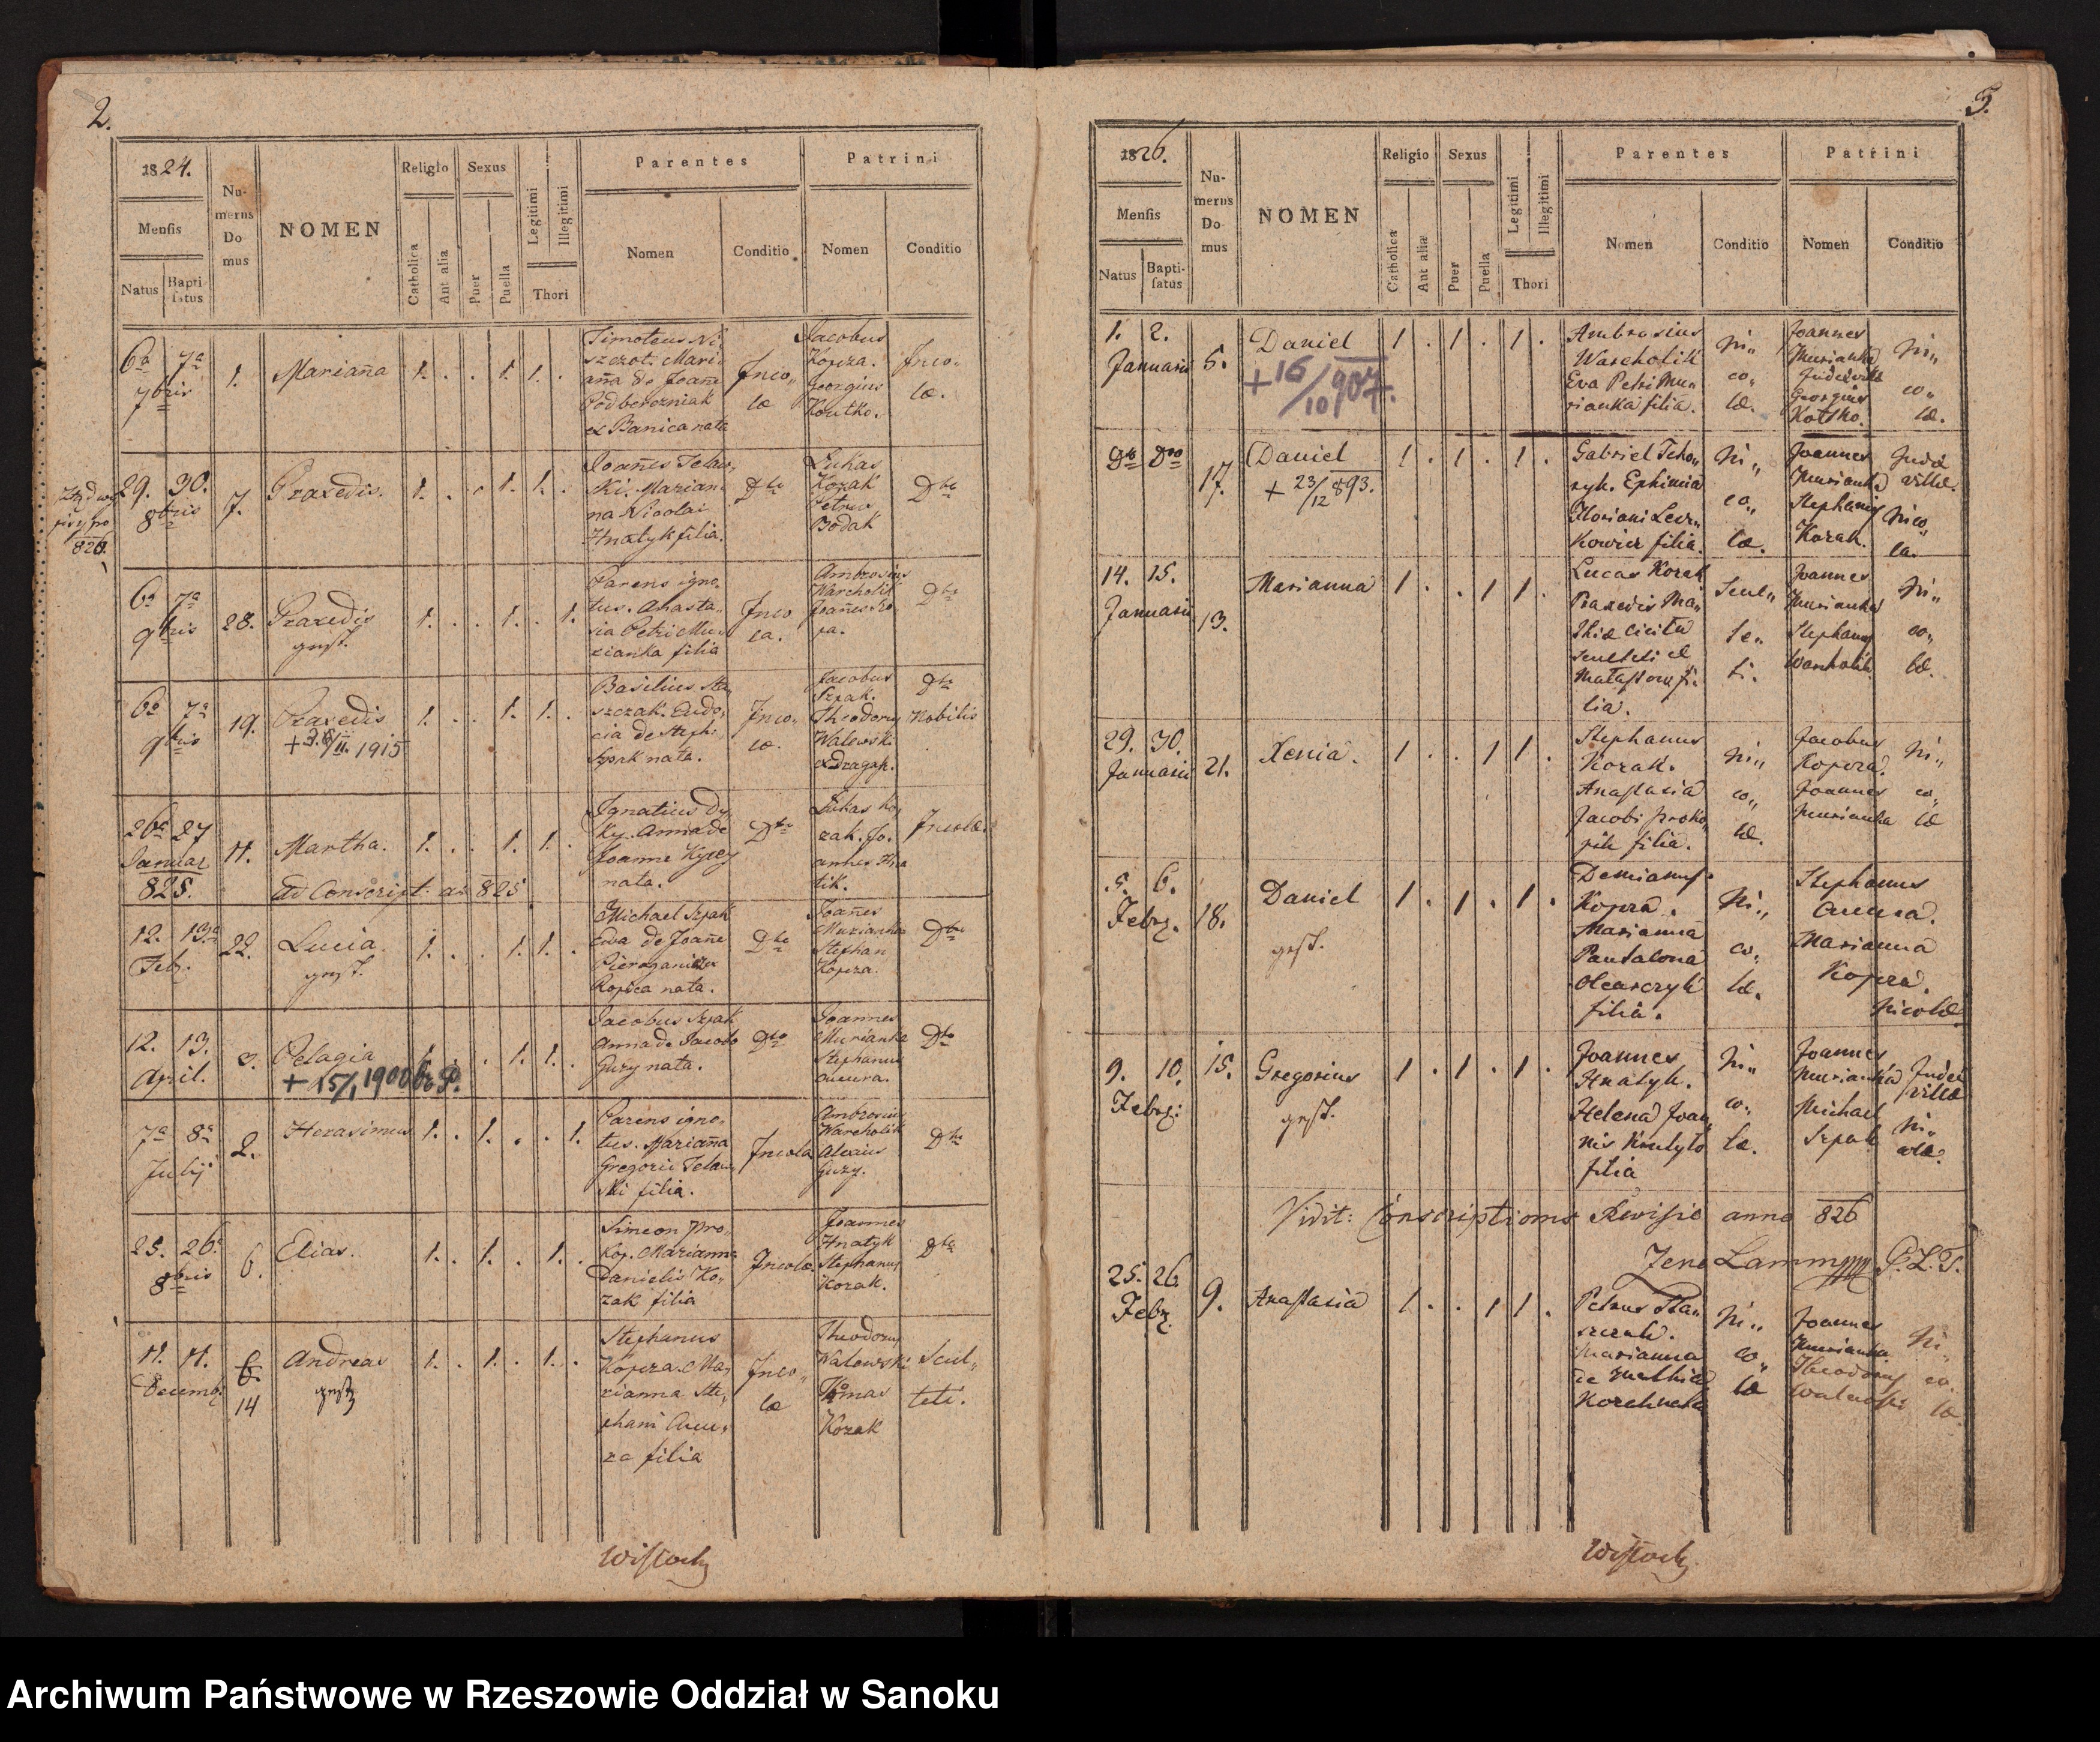 2.
1824.
Mensis
Natus
Bapti
satus
Nu-
merus
Do
mus
NOMEN
Religio
Catholica
Aut alia
Sexus
Puer
Puella
Legitimi
Illegitimi
Thori
Parentes
Nomen
Conditio
Patrini
Nomen
Conditio
6a 7a
7bris
1.
Mariaña
1. . . 1. 1. .
Timoteus Ni,
szczot. Mari,
aña de Joañe
Podberezniak
ex Banica nata
Inco,,
læ
Jacobus
Kopza.
Georgius
Koutko.
Inco,,
læ.
826.
29. 30.
8bris
7.
Praxedis.
1. . . 1. 1. .
Joañes Telaw,
ski. Marian,
na Nicolai
Hnatyk filia.
Dto
Lukas
Kozak
Petrus
Bodak
Dto
6a 7a
9bris
28.
Praxedis
gest.
1. . . 1. . 1.
Parens igno,
tus. Anasta,,
sia Petri Mu,
rianka filia
Inco
la.
Ambrosius
Warcholik
Joañes Ko,
pa.
Dto
6a 7a
9bris
19.
Praxedis
1915
1. . . 1. 1. .
Basilius Sta,
szczak. Eudo,
cia de Steph:
Szpak nata.
Inco,
læ.
Jacobus
Szpak.
Theodorus
Walewski
Dto
Nobilis
26a 27
Januar
825.
11.
Martha.
ad Conscript: ao 825
1. . . 1. 1. .
Ignatius Dy,
ky. Anna de
Joanne Kyrey
nata.
Dto
Lukas Ko,
zak. Jo,
annes Hna
tik.
Incolæ.
12. 13a
Feb.
22.
Lucia.
gest.
1. . . 1. 1. .
Michael Szpak
Eva de Joañe
nata.
Dto
Joañes
Murianka
Stephan
Kopza.
Dto
12. 13.
April.
3.
Pelagia
+ 15/1 1900
1. . . 1. 1. .
Jacobus Szpak
Anna de Jacobo
Guzy nata.
Dto
Joannes
Murianka
Stephanus
Dto
7a 8a
Julij
2.
Herasimus
1. . 1. . . 1.
Parens igno,
tus. Mariaña
Gregorii Telaw,
ski filia.
Incola
Ambrosius
Warcholik
Alexius
Guzy.
Dto
25. 26.
8bris
6.
Elias.
1. . 1. . 1. .
Simeon Pro,
kop. Marianna
Danielis Ko,
zak filia
Incolæ
Joannes
Hnatyk
Stephanus
Kozak.
Dto
11. 11.
Decemb.
14
Andreas
gest
1. . 1. . 1. .
Stephanus
Kopza. Ma,
rianna Ste,
phani
za filia
Inco,,
læ
Theodorus
Walewski
Tomas
Kozak
Scul,,
teti.
5.
1826.
Mensis
Natus
Bapti-
satus
Nu-
merus
Do-
mus
NOMEN
Religio
Catholica
Aut aliæ
Sexus
Puer
Puella
Legitimi
Illegitimi
Thori
Parentes
Nomen
Conditio
Patrini
Nomen
Conditio
1. 2.
Januarii
5.
Daniel
+ 16/10 907.
1 . 1 . 1 .
Ambrosius
Warcholik
Eva Petri Mu,,
rianka filia.
In,,
co,,
læ.
Joannes
Murianka
Georgius
Kotsko.
In,,
co,,
læ.
Dto Dto
17.
Daniel
+ 23/12 893.
1 . 1 . 1 .
Gabriel Tcho,,
ryk. Ephimia
Floriani Lew,,
kowicz filia.
In,,
co,,
læ.
Joannes
Murianka
Stephanus
Kozak.
Judex
villæ.
Inco,,
la.
14. 15.
Januarii
13.
Marianna
1 . . 1 1 .
Lucas Kozak
Praxedis Ma,
filia.
Scul,,
te,,
ti.
Joannes
Murianka
Stephanus
Warcholik
In,,
co,,
læ.
29. 30.
Januarii
21.
Xenia.
1 . . 1 1 .
Stephanus
Kozak.
Anastasia
Jacobi Proko,
pik filia.
In,,
co,,
læ.
Jacobus
Kopcza.
Joannes
Murianka
In,,
co,,
læ
5. 6.
Febr.
18.
Daniel
gest.
1 . 1 . 1 .
Demianus
Kopza.
Marianna
Pantalona
Olearczyk
filia.
In,,
co,,
læ.
Stephanus
Marianna
Kopza.
Incolæ
9. 10.
Febr:
15.
Gregorius
gest.
1 . 1 . 1 .
Joannes
Hnatyk.
Helena Joan,
nis
filia
In,,
co,,
læ.
Joannes
Murianka
Michael
Szpak
Judex
villæ
In,,
colæ.
Vidit: Conscriptions Revisio anno 826
P.L.T.
25. 26.
Febr.
9.
Anastasia
1 . . 1 1 .
Petrus Stas,
szczak.
Marianna
de Mathia
In,,
co,,
læ
Joannes
Murianka
Theodorus
Walewski
In,,
co,,
læ.
Wisłock
Wisłock
Archiwum Państwowe w Rzeszowie Oddział w Sanoku